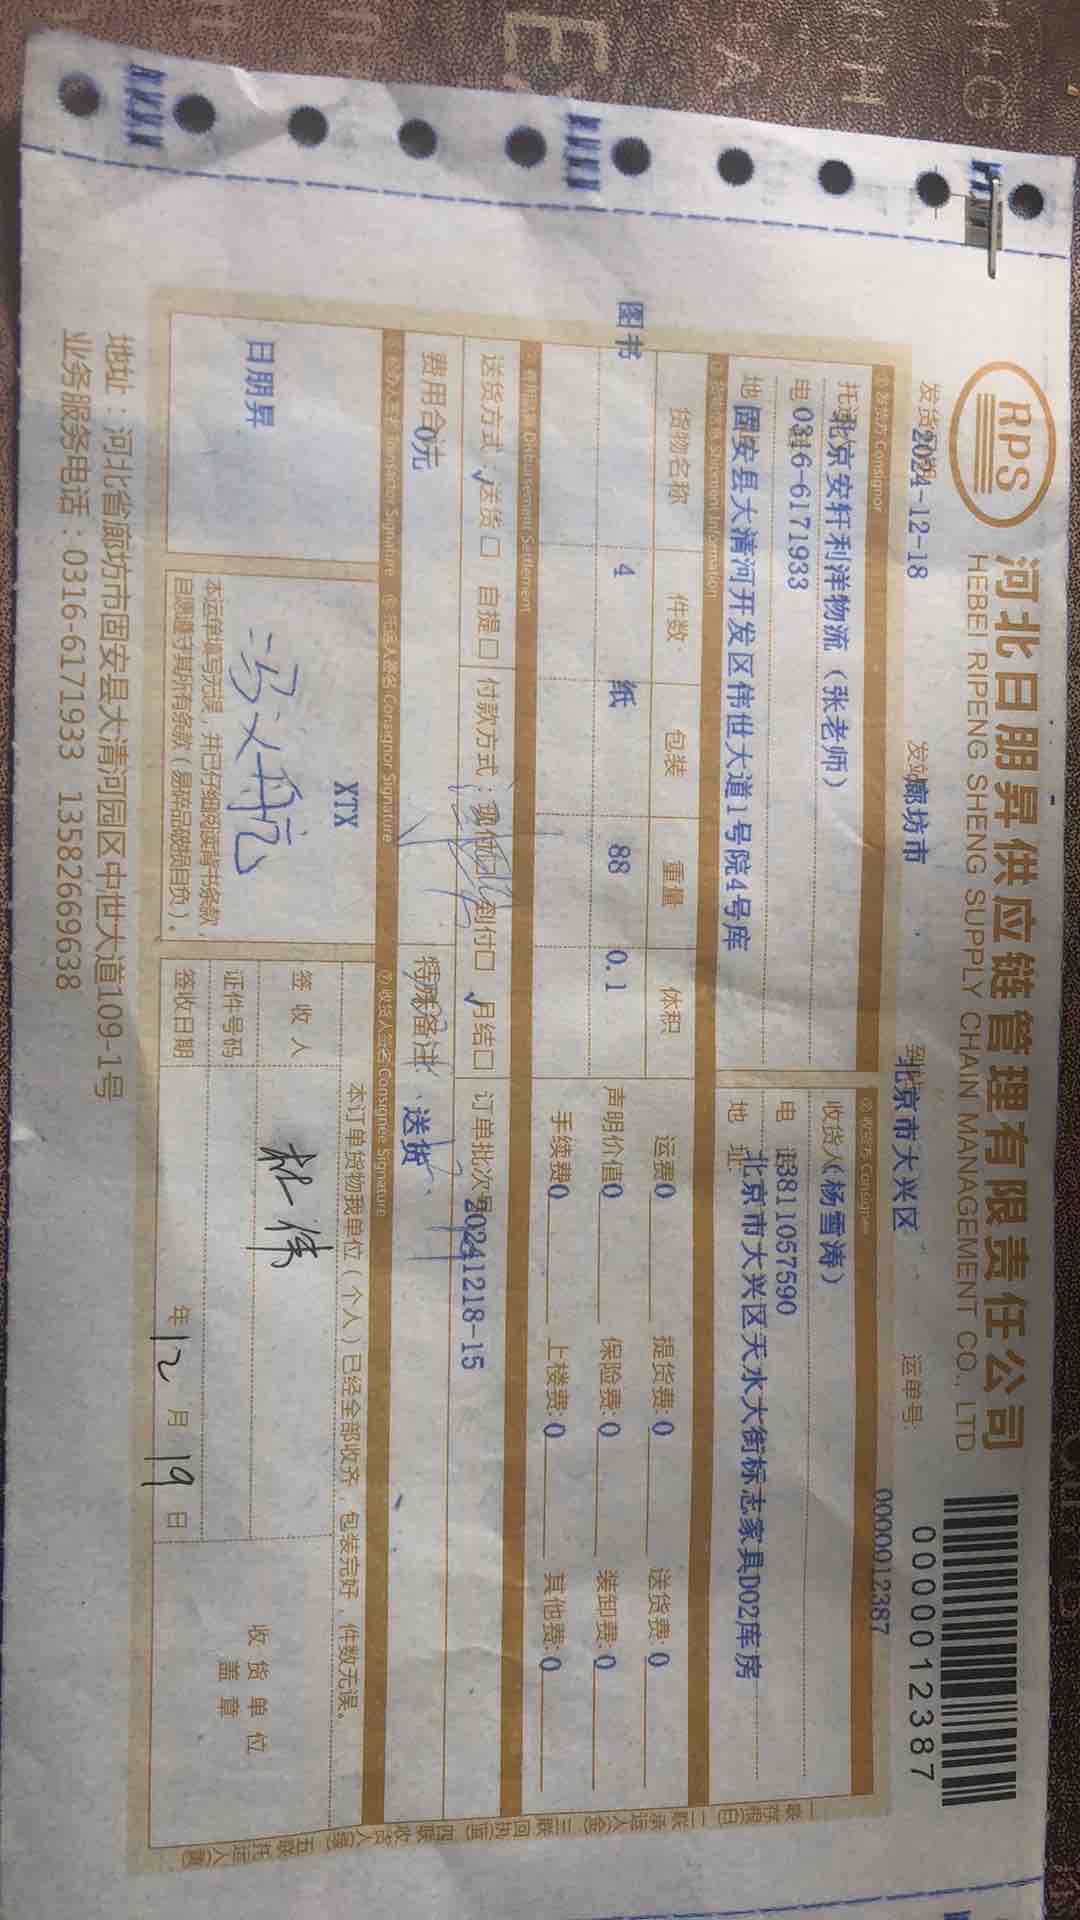 RPS
河北日朋昇供应链管理有限责任公司
HEBEI RIPENG SHENG SUPPLY CHAIN MANAGEMENT CO., LTD
0000012387
0000012387
2024-12-18 发站廊坊市 到北京市大兴区 运单号:
①发货方 Consignor
②收货方 Consignee
北京安轩利洋物流（张老师） 收货人(杨雪涛)
电0316-6171933 电 13811057590
地固安县大清河开发区伟世大道1号院4号库 地址北京市大兴区天水大街标志家具D02库房
Shipment Information
货物名称 件数 包装 重量 体积 运费0 提货费:0 送货费:0
图书 4 纸 88 0.1 声明价值0 保险费:0 装卸费:0
手续费0 上楼费:0 其他费:0
Disbursement Settlement
送货方式:√送货□ 自提□ 付款方式: 到付□ √月结□ 订单批次号20241218-15
费用合0元 特殊备注 送货
Transactor Signature
⑥托运人签名 Consignor Signature
⑦收货人签名 Consignee Signature
日朋昇
XTX
本订单货物我单位(个人)已经全部收齐，包装完好，件数无误。
本运单填写无误，并已仔细阅读背书条款，
自愿遵守其所有条款(易碎品破损自负)。
签收人 林伟
证件号码
签收日期 年12月19日
收货单位
盖章
地址：河北省廊坊市固安县大清河园区中世大道109-1号
业务服务电话：0316-6171933 13582669638